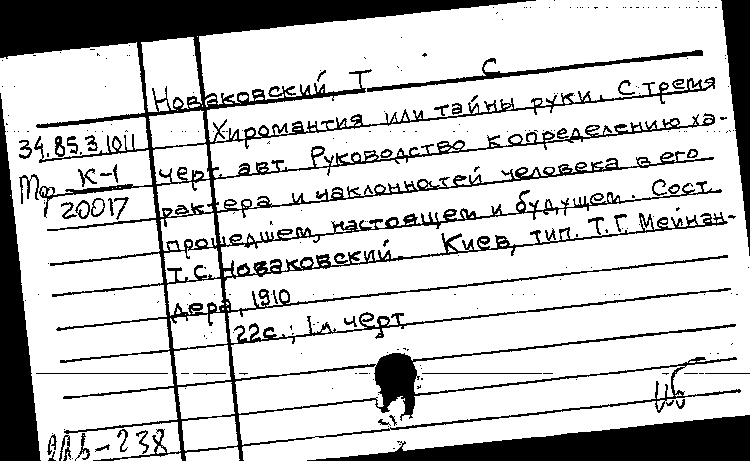 Новаковский, Т С
34.85.3.1011
Хиромантия или тайны руки. С тремя
К-1
20017
черт. авт. Руководство к определению ха-
рактера и наклонностей человека в его
прошедшем, настоящем и будущем. Сост.
Т. С. Новаковский. Киев, тип. Т. Г. Мейнан-
дера, 1910
22с.; 1 л. черт.
-238